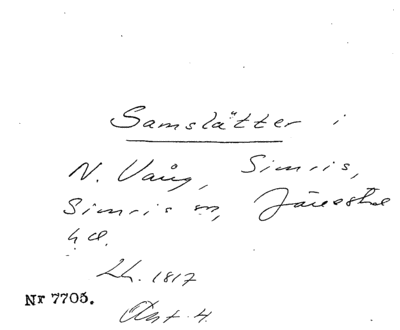 Samslätter i
N. Vång, Simris,
Simris m, Järrestad
hd.
Lh. 1817
Nr 7705.